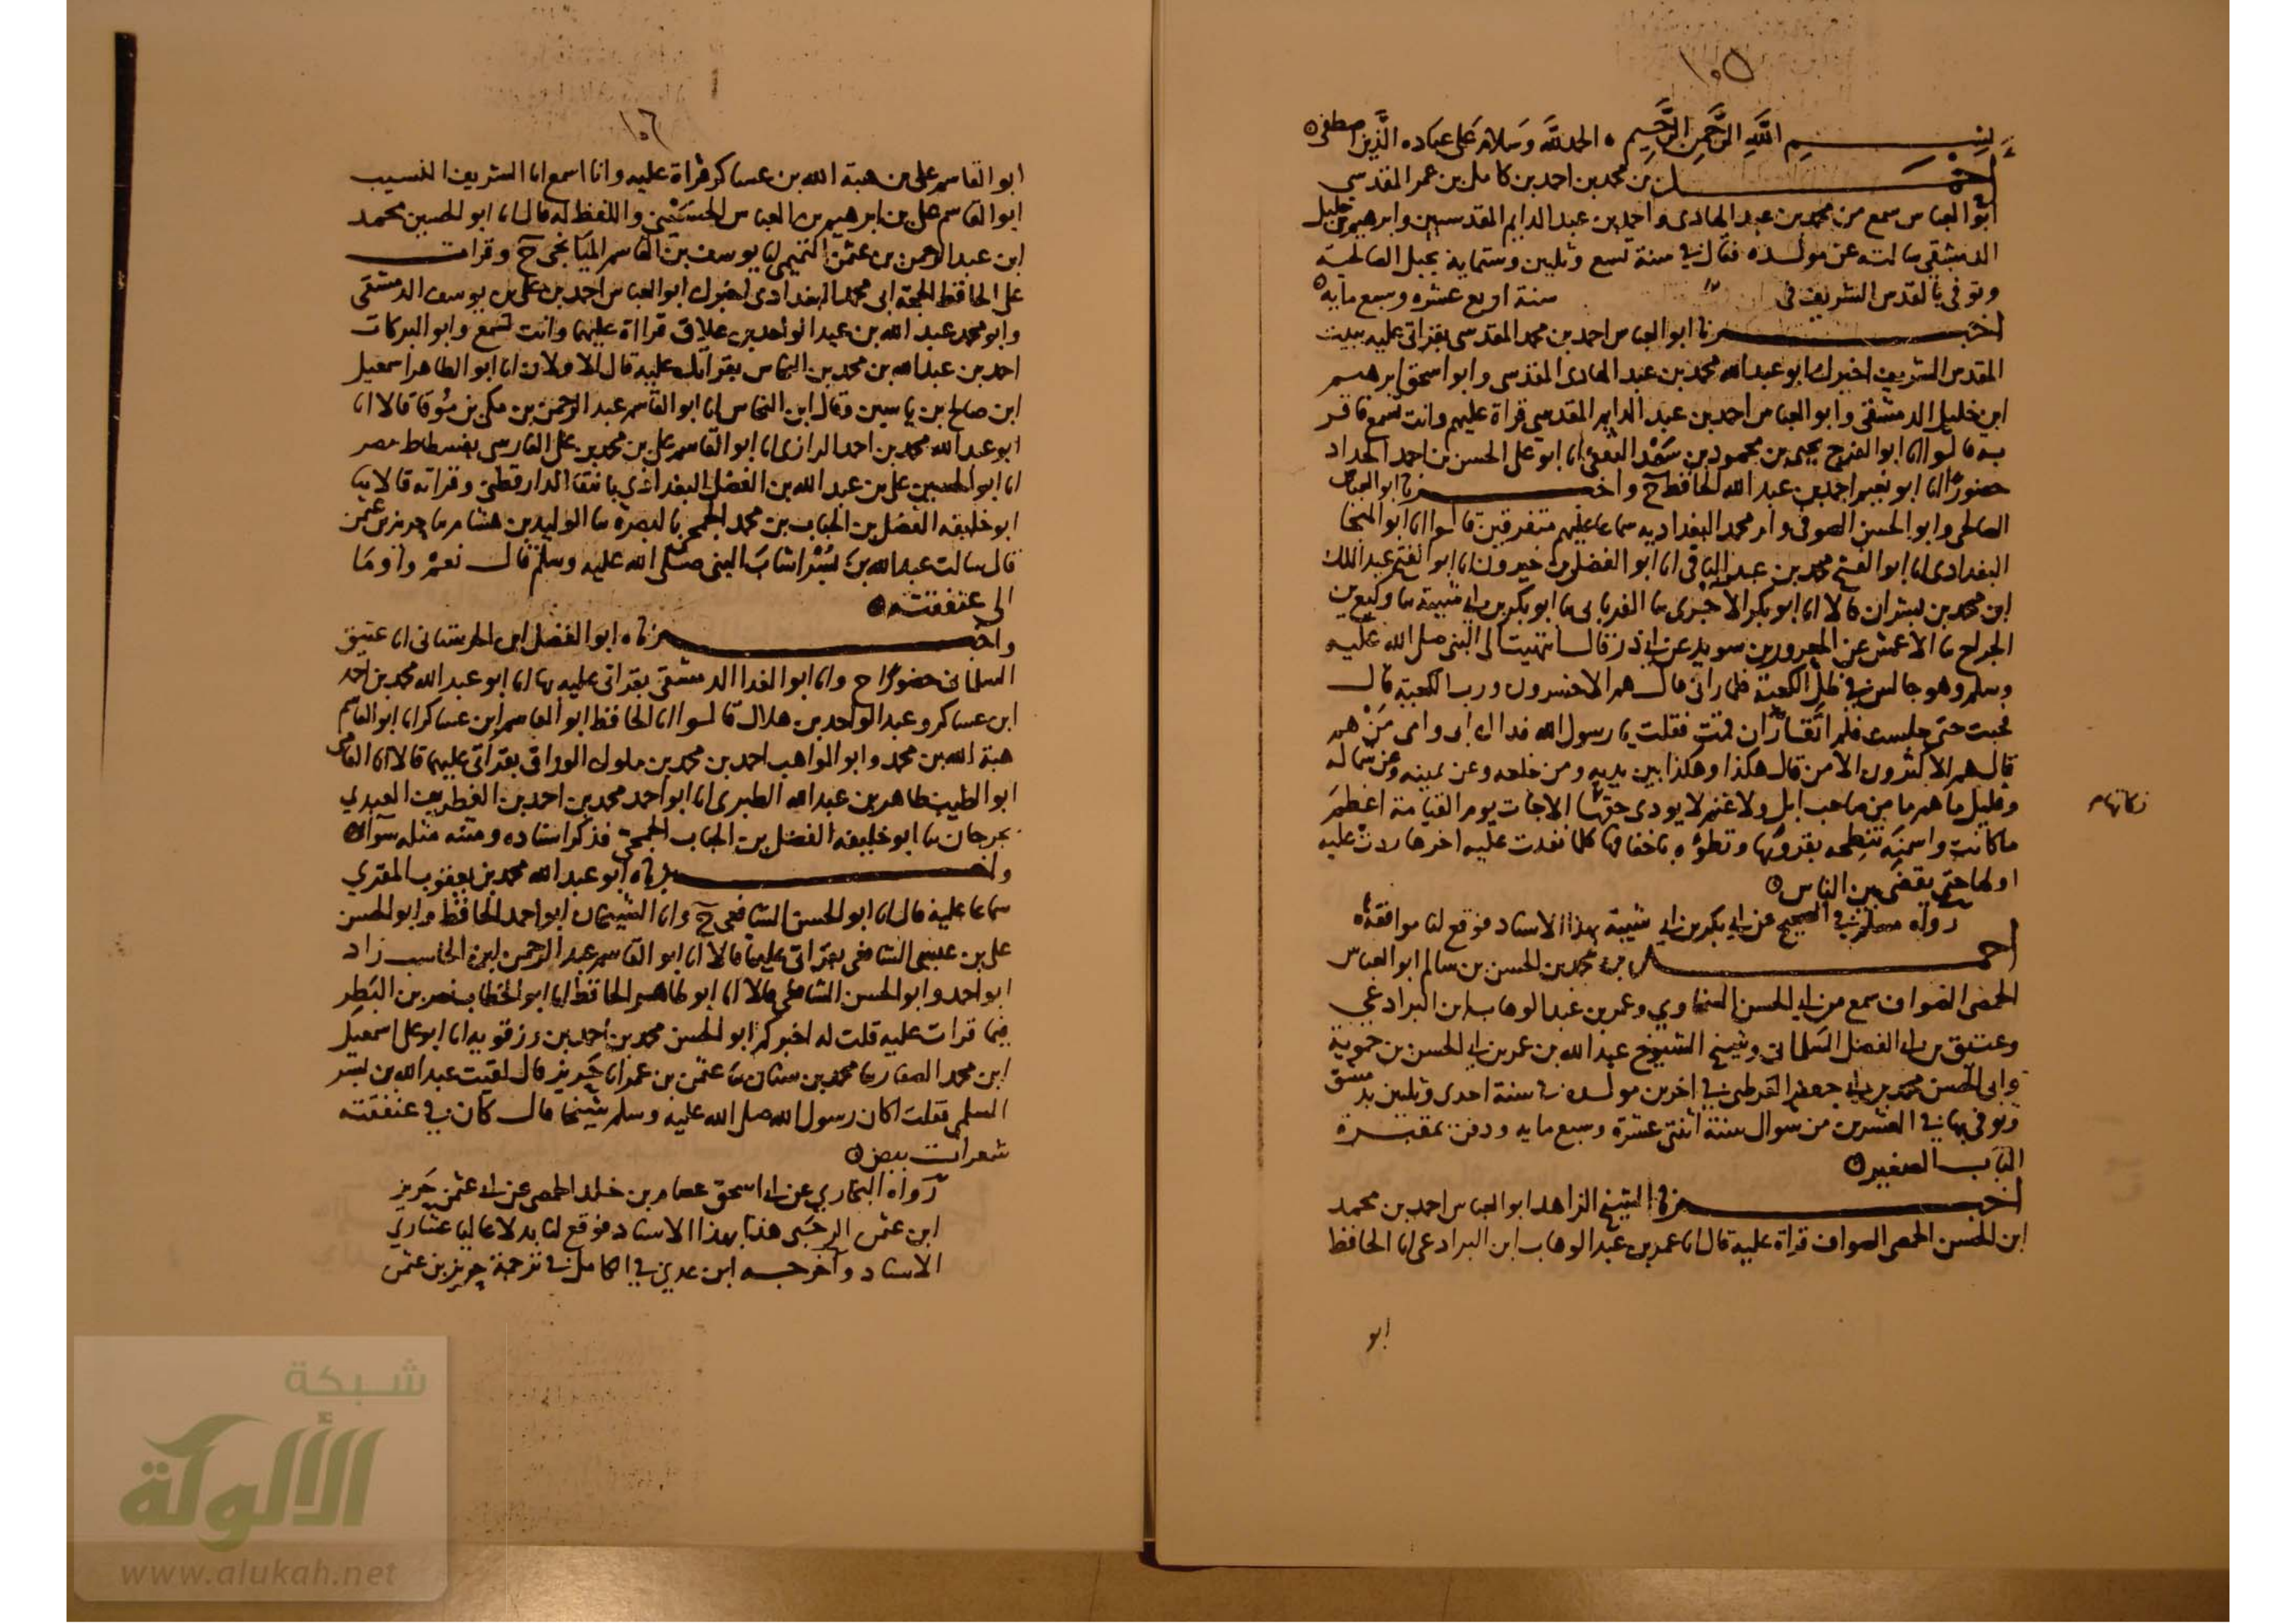 ١٠٥
بسم الله الرحمن الرحيم ٥ الحمد لله وسلام على عباده الذين اصطفى ٥
احمد بن محمد بن احمد بن كامل بن عمر المقدسي
ابو العباس سمع من محمد بن عبد الهادى واحمد بن عبد الدايم المقدسيين وابرهيم بن خليل
الدمشقى سالته عن مولده فقال في سنة تسع وثلثين وستماية بجبل الصالحية
وتوفى بالقدس الشريف فى سنة اربع عشره وسبع مايه ٥
اخبرنا ابو العباس احمد بن محمد المقدسى بقراتى عليه ببيت
المقدس الشريف اخبرك ابو عبد الله محمد بن عبد الهادى المقدسى وابو اسحق ابرهيم
ابن خليل الدمشقى وابو العباس احمد بن عبد الدايم المقدسي قراة عليهم وانت تسمع فاقر
به قالوا انا ابو الفرج يحيى بن محمود بن سعد الثقفى انا ابو على الحسن بن احمد الحداد
حضورا انا ابو نعيم احمد بن عبد الله الحافظ ح واخبرنا ابو العباس
الصالحى وابو الحسن الصوفى وام محمد البغداديه سماعا عليهم متفرقين قالوا انا ابو المنجا
البغدادى انا ابو الفتح محمد بن عبد الباقى انا ابو الفضل بن خيرون انا ابو الفتح عبد الملك
ابن محمد بن بشران قالا انا ابو بكر الآجرى ثنا الفريابى ثنا ابو بكر بن ابي شيبة ثنا وكيع بن
الجراح ثنا الاعمش عن المعرور بن سويد عن ابي ذر قال انتهيت الى النبى صلى الله عليه
وسلم وهو جالس في ظل الكعبة فلما رانى قال هم الاخسرون ورب الكعبة قال
فجيت حتى جلست فلم اتقار ان قمت فقلت يا رسول الله فداك ابى وامى من هم
قال هم الاكثرون الا من قال هكذا وهكذا بين يديه ومن خلفه وعن يمينه وعن شماله
وقليل ما هم ما من صاحب ابل ولا غنم لا يودى حقها الا جات يوم القيامة اعظم
زكاتها م
ما كانت واسمنه تنطحه بقرونها وتطوه باخفافها كلما نفدت عليه اخرها عليه
اولاها حتى يقضى بين الناس ٥
رواه مسلم في الصحيح عن ابي بكر بن ابي شيبة بهذا الاسناد فوقع لنا موافقة
احمد بن محمد بن الحسن بن سالم ابو العباس
الحمصى الصواف سمع من ابي الحسن السخاوي وعمر بن عبد الوهاب ابن البرادعي
وعتيق بن ابي الفضل السلمانى وشيخ الشيوخ عبد الله بن عمر بن ابي الحسن بن حموية
وابى الحسن محمد بن ابي جعفر القرطبي في اخرين مولده في سنة احدى وثلثين بدمشق
وتوفى بها في العشرين من شوال سنة اثنتى عشرة وسبع مايه ودفن بمقبرة
الباب الصغير ٥
اخبرنا الشيخ الزاهد ابو العباس احمد بن محمد
ابن الحسن الحمصى الصواف قراة عليه قال انا عمر بن عبد الوهاب ابن البرادعى انا الحافظ
ابو
١٠٦
ابو القاسم على بن هبة الله بن عساكر قراة عليه وانا اسمع انا الشريف النسيب
ابو القاسم على بن ابرهيم بن العباس الحسيني واللفظ له قال انا ابو الحسين محمد
ابن عبد الرحمن بن عثمن التميمى انا يوسف بن القاسم الميانجى ح وقرات
على الحافظ الحجة ابى محمد البغدادى اخبرك ابو العباس احمد بن على بن يوسف الدمشقى
وابو محمد عبد الله بن عبد الواحد بن علاق قراة عليهما وانت تسمع وابو البركات
احمد بن عبد الله بن محمد بن النحاس بقراتك عليه قال الاولان انا ابو الطاهر اسمعيل
ابن صالح بن ياسين وقال ابن النحاس انا ابو القاسم عبد الرحمن بن مكى بن موقا قالا انا
ابو عبد الله محمد بن احمد الرازى انا ابو القاسم على بن محمد بن على الفارسى بفسطاط مصر
انا ابو الحسين على بن عبد الله بن الفضل البغدادى بانتقا الدارقطنى وقراته قالا ثنا
ابو خليفه الفضل بن الحباب بن محمد الجمحى بالبصرة ثنا الوليد بن هشام ثنا حريز بن عثمن
قال سالت عبد الله بن بسر اشاب النبى صلى الله عليه وسلم قال نعم واومَا
الى عنفقته ٥
واخبرناه ابو الفضل ابن الحرستانى انا عتيق
السلمانى حضورا ح وانا ابو الفدا الدمشقى بقراتى عليه بها انا ابو عبد الله محمد بن احمد
ابن عساكر وعبد الواحد بن هلال قالوا انا الحافظ ابو القاسم ابن عساكر انا ابو القاسم
هبة الله بن محمد وابو المواهب احمد بن محمد بن ملوك الوراق بقراتى عليهما قالا انا القاضى
ابو الطيب طاهر بن عبد الله الطبرى انا ابو احمد محمد بن احمد بن الغطريف العبدي
بجرجان ثنا ابو خليفه الفضل بن الحباب الجمحى فذكر اسناده ومتنه مثله سوا ٥
واخبرناه ابو عبد الله محمد بن يعقوب المقري
سماعا عليه قال انا ابو الحسن الشافعي ح وانا الشيخان ابو احمد الحافظ وابو الحسن
على بن عيسى الشافعى بقراتى عليهما قالا انا ابو القاسم عبد الرحمن ابن الحاسب زاد
ابو احمد وابو الحسن الشافعى قالا انا ابو طاهر الحافظ انا ابو الخطاب نصر بن البطر
فيما قرات عليه قلت له اخبركم ابو الحسن محمد بن احمد بن رزقويه انا ابو على اسمعيل
ابن محمد الصفار ثنا محمد بن سنان ثنا عثمن بن عمر انا حريز قال لقيت عبد الله بن بسر
السلمى فقلت اكان رسول الله صلى الله عليه وسلم شيخا قال كان في عنفقته
شعرات بيض ٥
رواه البخاري عن ابي اسحق عصام بن خلد الحمصى عن ابي عثمن حريز
ابن عثمن الرحبى هذا بهذا الاسناد فوقع لنا بدلا عاليا عشاري
الاسناد واخرجه ابن عدي في الكامل في ترجمة حريز بن عثمن
شبكة
الألوكة
www.alukah.net